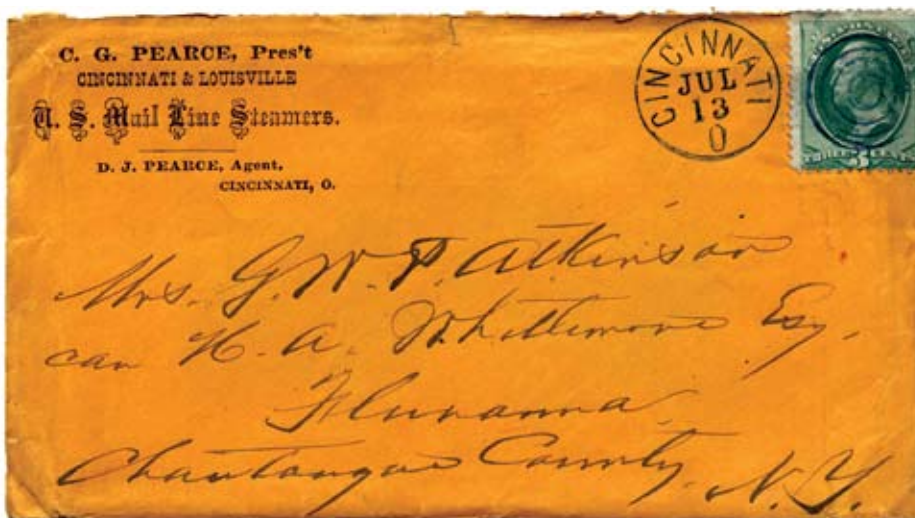 C. G. PEARCE, Pres't
CINCINNATI & LOUISVILLE
U. S. Mail Line Steamers.
D. J. PEARCE, Agent,
CINCINNATI, O.
CINCINNATI
JUL
13
O
Mrs. G. W. P. Atkinson
care H. A. Whittemore Esq.
Fluvanna
Chautauque County. N.Y.
3